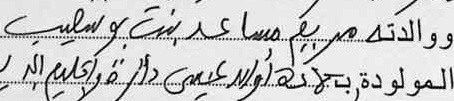 ووالدته مريم مساعد بنت بوسليب
المولودة بحلة أولاد عيسى دائرة وإقليم الج